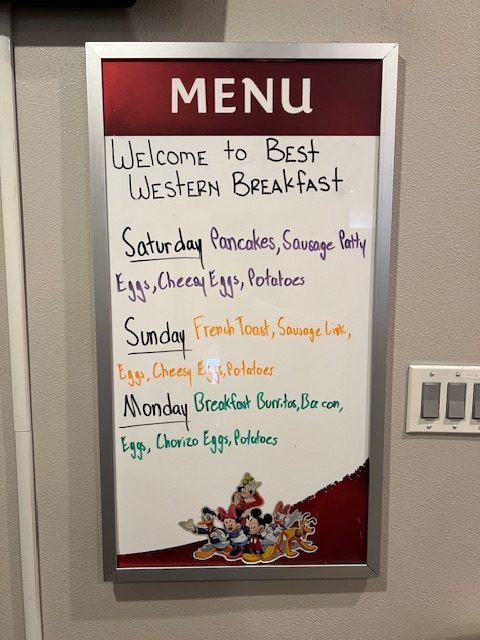 MENU
Welcome to Best
Western Breakfast
Saturday Pancakes, Sausage Patty
Eggs, Cheesy Eggs, Potatoes
Sunday French Toast, Sausage Link,
Eggs, Cheesy Eggs, Potatoes
Monday Breakfast Burritos, Bacon,
Eggs, Chorizo Eggs, Potatoes